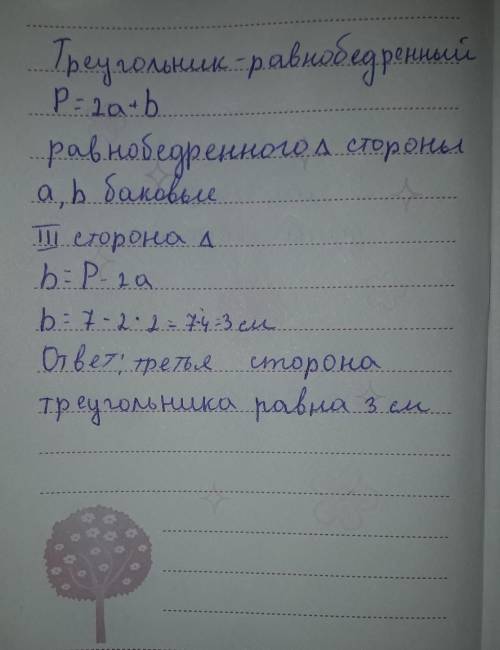 Треугольник-равнобедренный
P=2a+b
равнобедренного Δ стороны
a, b баковые
III сторона Δ
b=P-2a
b=7-2·2=7-4=3см
Ответ: третья сторона
треугольника равна 3 см